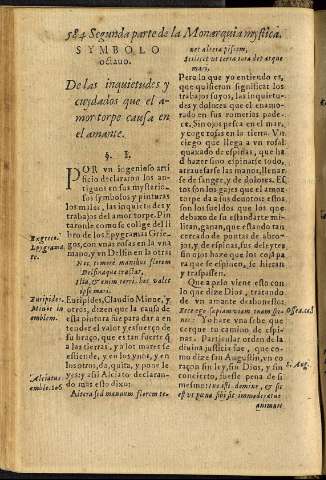 584 Segunda parte de la Monarquia mystica.
SYMBOLO
octauo.
De las inquietudes y
cuydados que el a-
mor torpe causa en
el amante.
§. I.
POR vn ingenioso arti
ficio declararon los an-
tiguos en sus mysterio-
sos symbolos y pinturas
los males, las inquietudes y
trabajos del amor torpe. Pin
taronle como se colige del li
bro de los Epygramas Grie-
gos, con vnas rosas en la vna
mano, y vn Delfin en la otra
Nec temerè manibus florem
Delphinaque tractat,
Illa, & enim terris, hac valet
ipse mari.
Euripides, Claudio Minoe, y
otros, dizen que la causa de
esta pintura fue para dar a en
tender el valor y esfuerço de
su braço, que es tan fuerte q̃
a las tierras, y a los mares se
estiende, y en los vnos, y en
los otros, da, quita, y pone le
yes: y assi Alciato declaran-
do mas esto dixo:
Altera sed manuum florem te-
Ex grec.
Epygrama
te.
Euripides.
Minoe in
emblem.
Alciatus
emble. 106.
net altera piscem,
Scilicet vt terra iura det atque
mari.
Pero lo que yo entiendo es,
que quisieron significar los
trabajos suyos, las inquietu-
des y dolores que el enamo-
rado en sus romerias pade-
ce. Sin ojos pesca en el mar,
y coge rosas en la tierra. Vn
ciego que llega a vn rosal
quaxado de espinas, que ha
d hazer sino espinarse todo,
araursarse las manos, llenar
se de sangre, y de dolores. Es
tos son los gajes que el amor
torpe da a sus enamorados,
estos los gustos de los que
debaxo de su estandarte mi-
litan, ganan, estando tan
cercado de puntas de abro-
jos, y de espinas, sus deleytes
sin ojos hazẽ que los cojã pa
ra que se espinen, se hieran
y traspassen.
Que a pelo viene esto con
lo que dize Dios, tratando
de vn amante deshonesto:
Ecce ego sepiam viam tuam spi-
nis: Yo hare vna sebe que
cerque tu camino de espi-
nas. Particular orden de la
diuina justicia fue, que co-
mo dize san Augustin, vn co
raçon sin ley, sin Dios, y sin
concierto, fuesse pena de si
mesmo:
est vt pœna sibi sit immoderatus
animus
Osea. ca. 2
S. Aug.